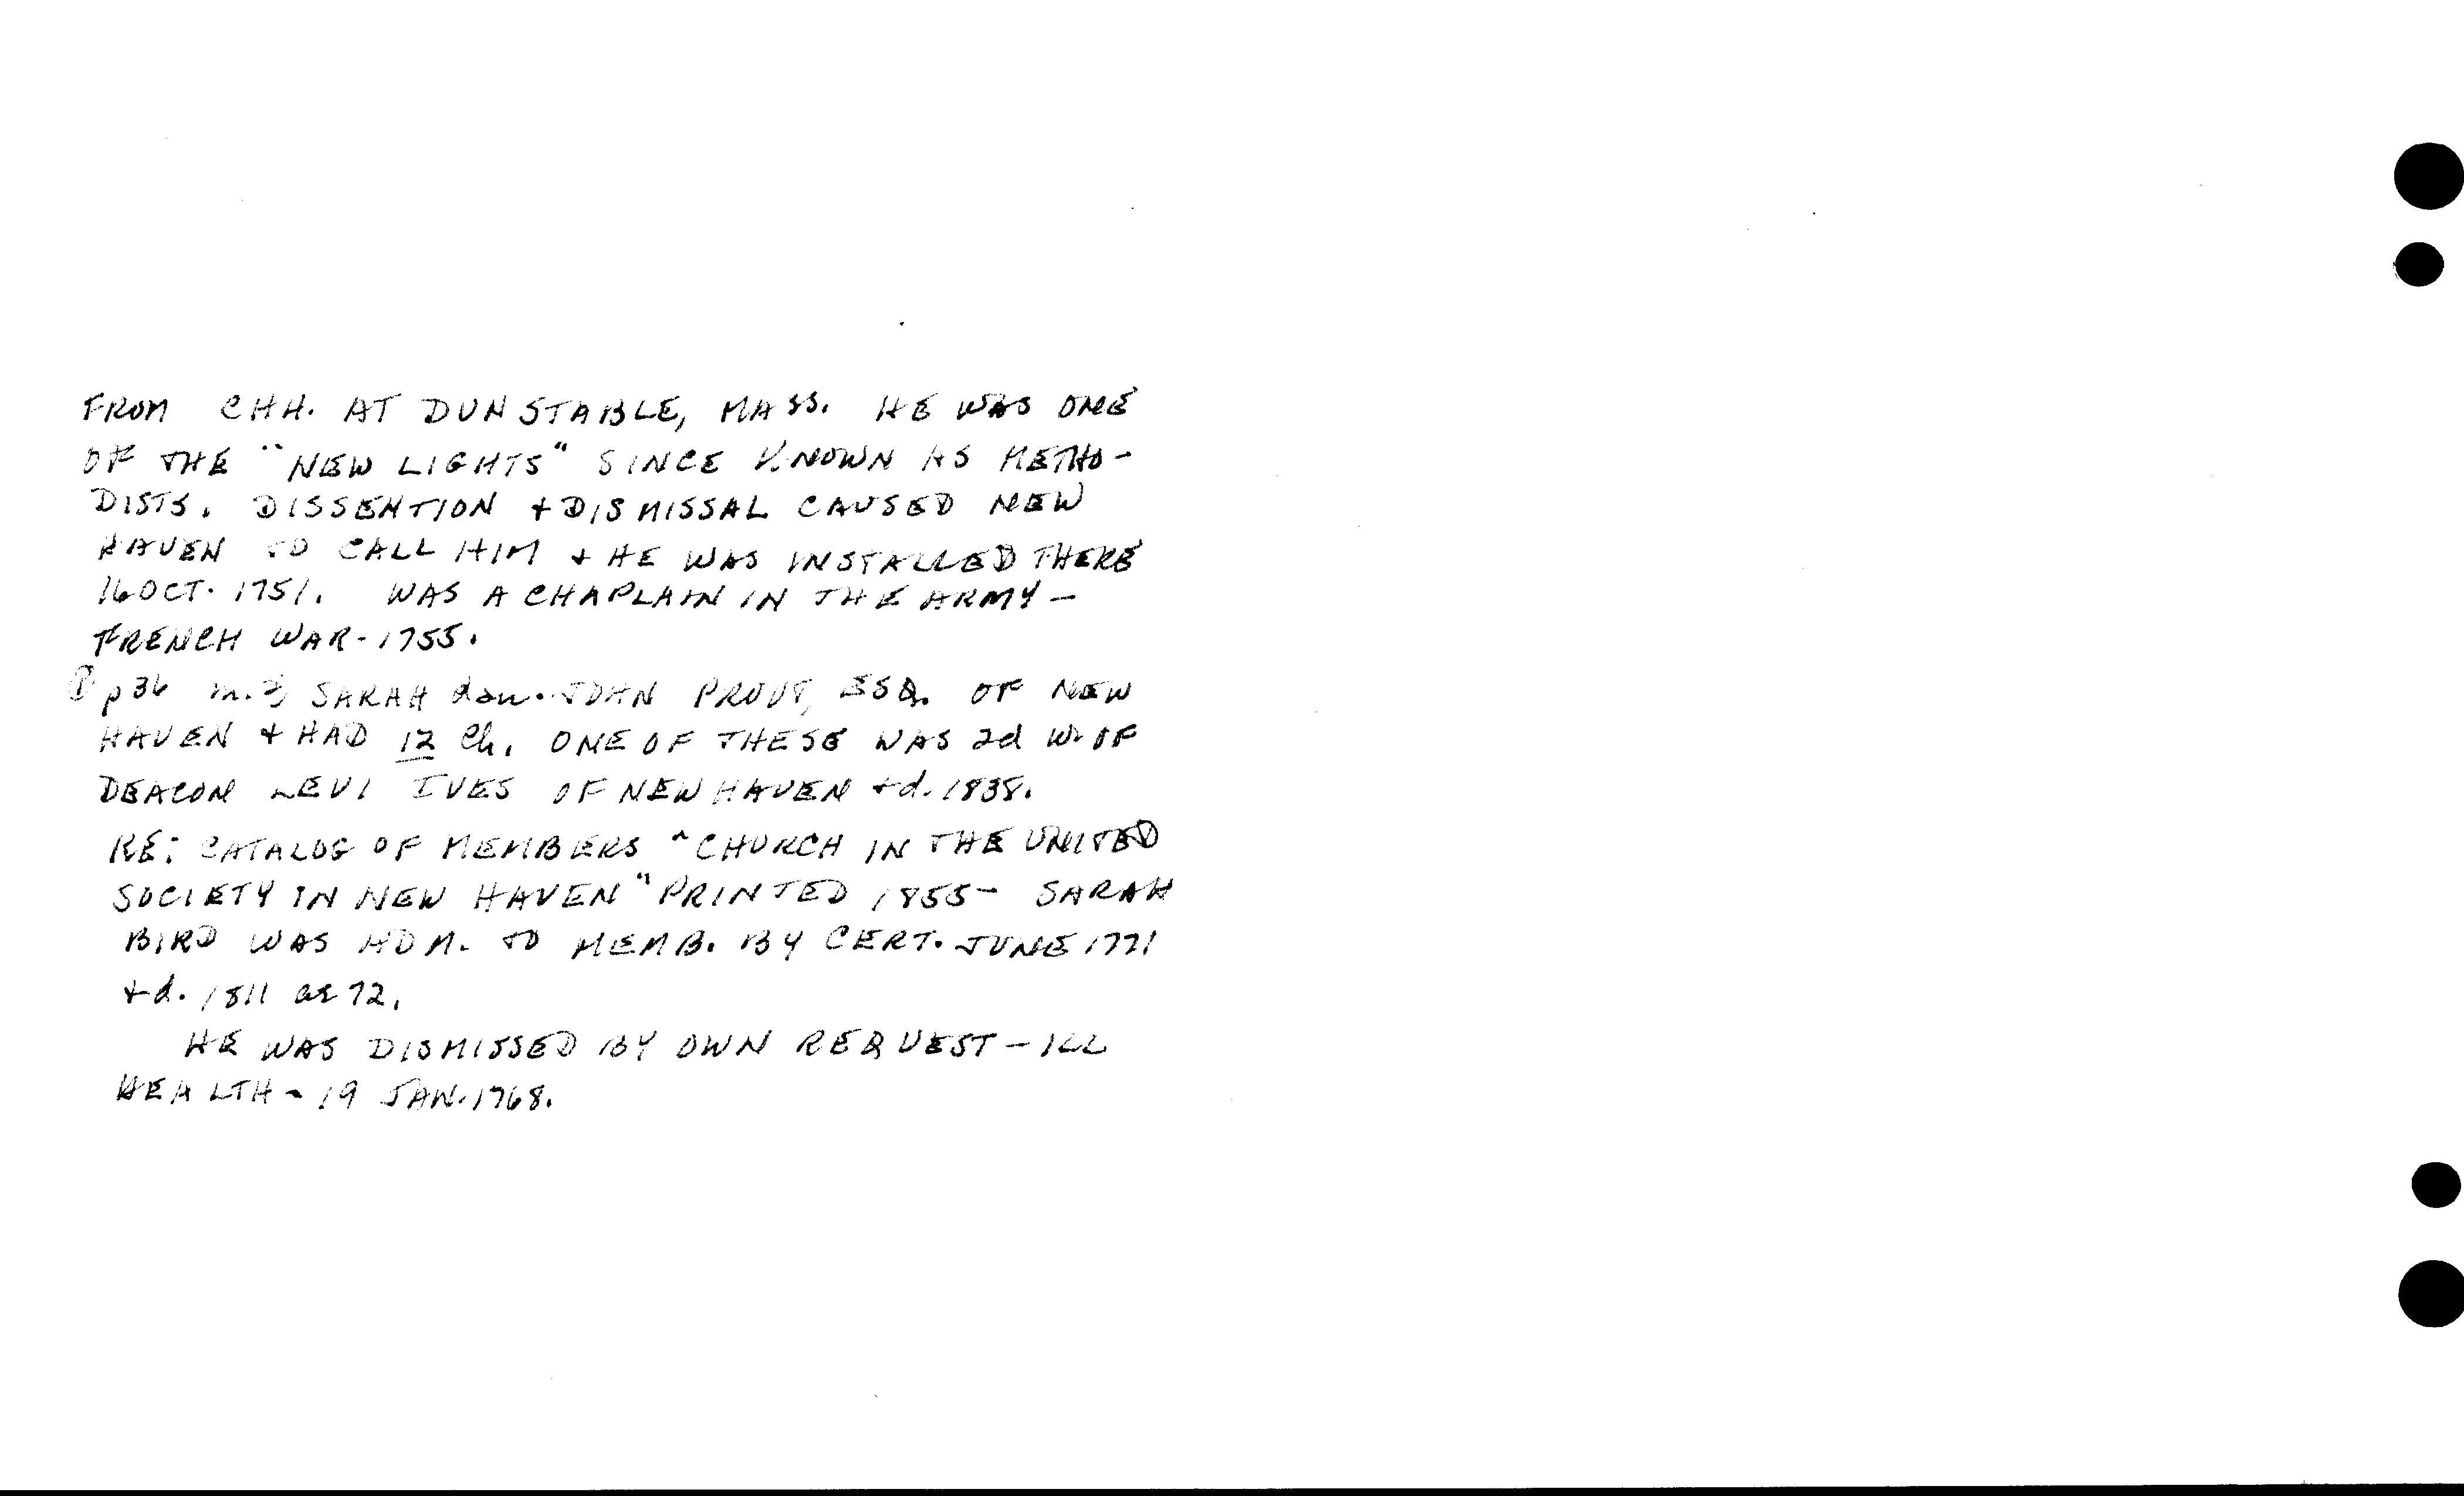 FROM CHH. AT DUNSTABLE, MASS. HE WAS ONE
OF THE "NEW LIGHTS" SINCE KNOWN AS METHO-
DISTS. DISSENTION + DISMISSAL CAUSED NEW
HAVEN TO CALL HIM + HE WAS INSTALLED THERE
16 OCT. 1751. WAS A CHAPLAIN IN THE ARMY -
FRENCH WAR - 1755.
p36 m. SARAH dau. JOHN PROUT, ESQ. OF NEW
HAVEN + HAD 12 Ch. ONE OF THESE WAS 2d W. OF
DEACON LEVI IVES OF NEW HAVEN + d. 1838.
RE: CATALOG OF MEMBERS "CHURCH IN THE UNITED
SOCIETY IN NEW HAVEN" PRINTED 1855 - SARAH
BIRD WAS ADM. TO MEMB. BY CERT. JUNE 1771
+ d. 1811 ae 72.
HE WAS DISMISSED BY OWN REQUEST - ILL
HEALTH - 19 JAN. 1768.